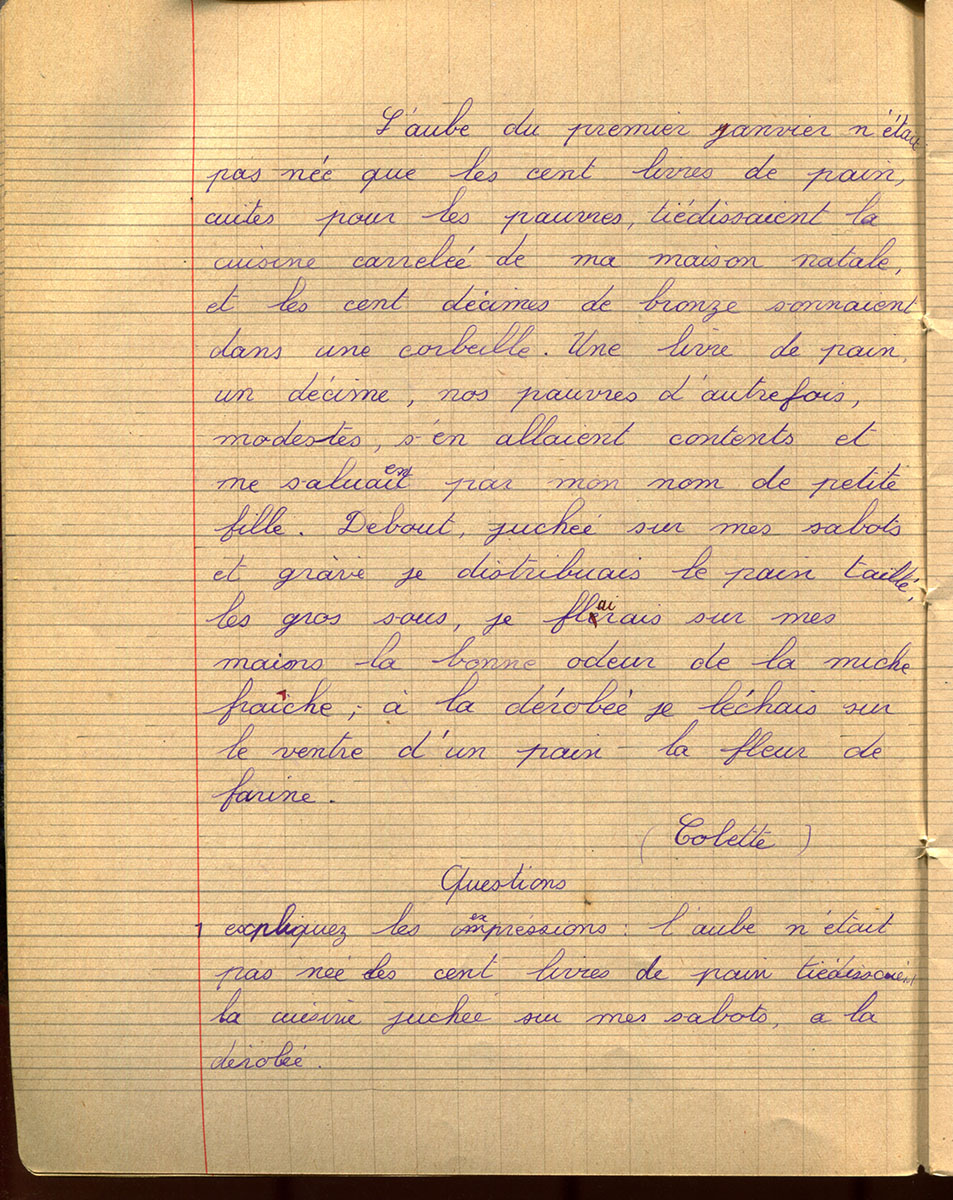 L'aube du premier janvier n'était
pas née que les cent livres de pain,
cuites pour les pauvres, tiédissaient la
cuisine carrelée de ma maison natale,
et les cent décimes de bronze sonnaient
dans une corbeille. Une livre de pain,
un décime, nos pauvres d'autrefois,
modestes, s'en allaient contents et
me saluaient par mon nom de petite
fille. Debout, juchée sur mes sabots
et grave je distribuais le pain taillé,
les gros sous, je flairais sur mes
mains la bonne odeur de la miche
fraîche ; à la dérobée je léchais sur
le ventre d'un pain la fleur de
farine.
(Colette)
Questions
1 expliquez les expréssions : l'aube n'était
pas née les cent livres de pain tiédissaient
la cuisine juchée sur mes sabots, a la
dérobée.